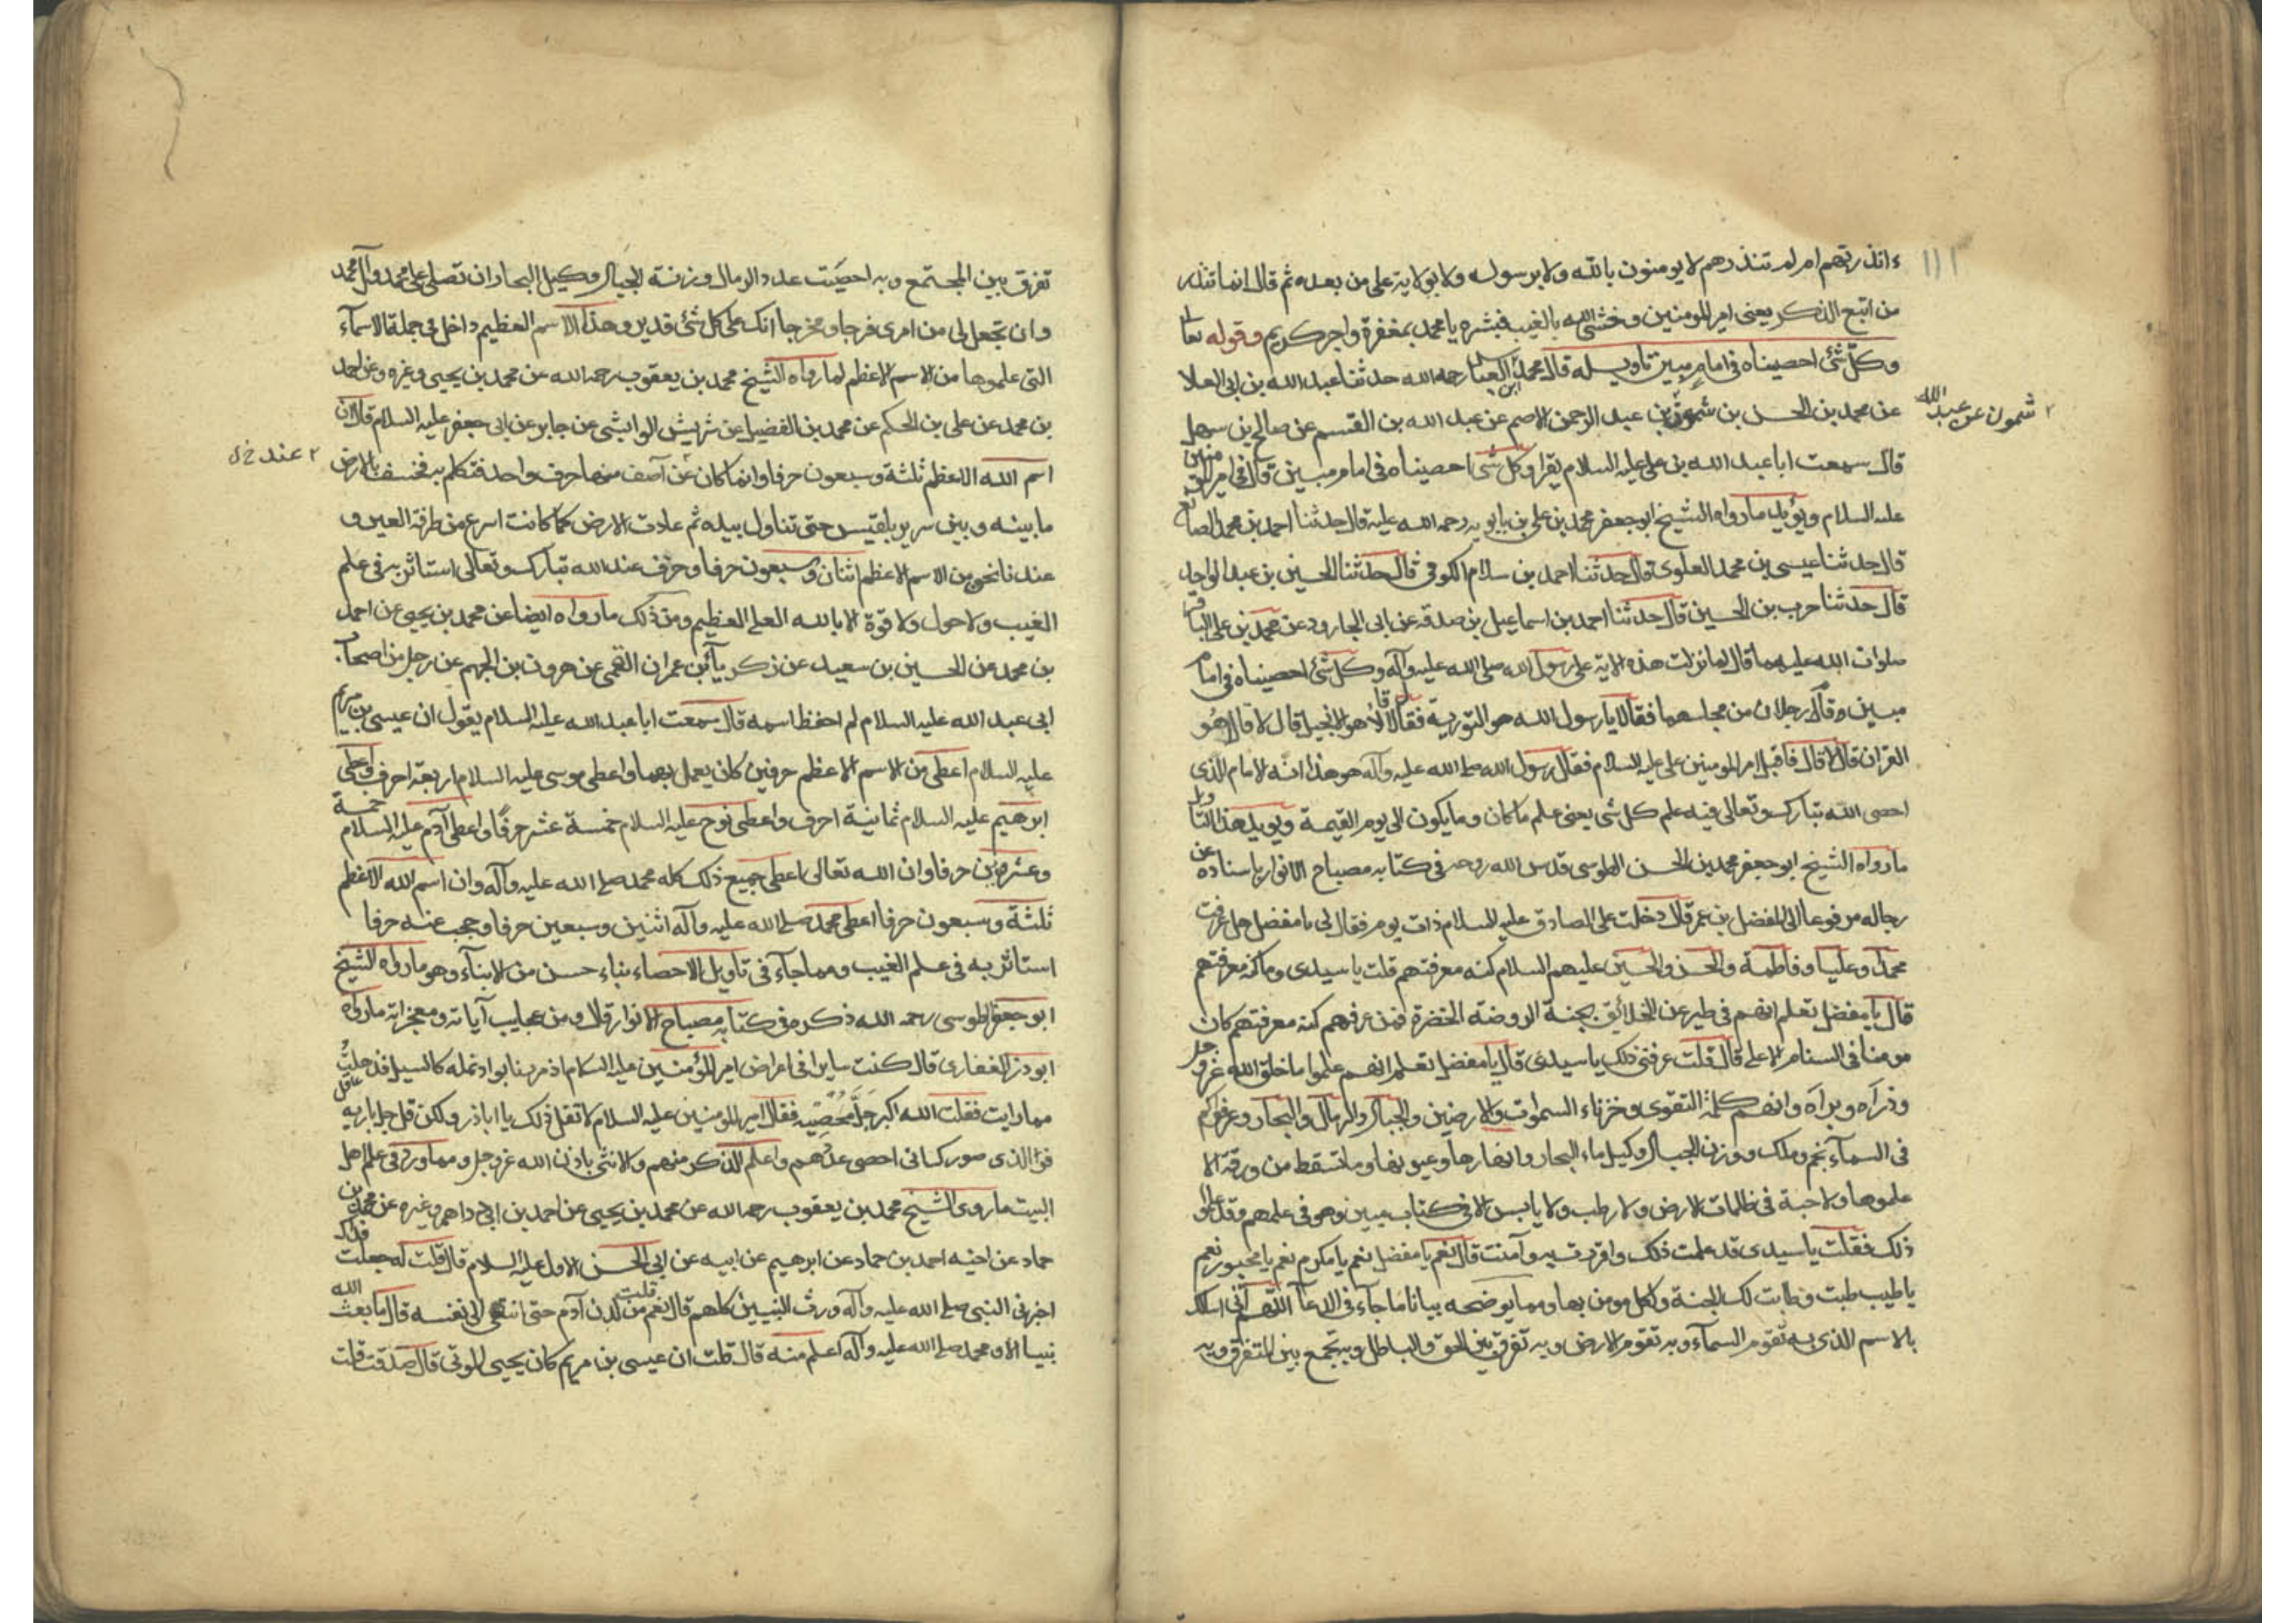 ءانذرتهم ام لم تنذرهم لا يومنون بالله ولا برسوله ولا بولاية علي من بعده ثم قال انما تنذر
من اتبع الذكر يعنى امير المومنين وخشى الله بالغيب فبشره يا محمد بمغفرة واجر كريم وقوله تعا
وكل شئ احصيناه فى امام مبين تاويله قال محمد بن العباس رحمه الله حدثنا عبد الله بن ابى العلا
شمون عن عبد الله
عن محمد بن الحسن بن شمون بن عبد الرحمن الاصم عن عبد الله بن القسم عن صالح بن سهل
قال سمعت ابا عبد الله بن علي عليه السلام يقرا وكل شئ احصيناه فى امام مبين قال فى امير المومنين
عليه السلام ويؤيد ما رواه الشيخ ابو جعفر محمد بن علي بن بابويه رحمه الله عليه قال حدثنا احمد بن محمد الصايغ
قال حدثنا عيسى بن محمد العلوى قال حدثنا احمد بن سلام الكوفى قال حدثنا الحسين بن عبد الواحد
قال حدثنا حرب بن الحسين قال حدثنا احمد بن اسماعيل بن صدقه عن ابى الجارود عن محمد بن علي الباقر
صلوات الله عليهما قال لما نزلت هذه الاية على رسول الله صلى الله عليه وآله وكل شئ احصيناه فى امام
مبين وقام رجلان من مجلسهما فقالا يا رسول الله هو التورية فقال لا قالا هو الانجيل قال لا قالا هو
القران قال لا قال فاقبل امير المومنين علي عليه السلام فقال رسول الله صلى الله عليه وآله هو هذا انه الامام الذى
احصى الله تبارك وتعالى فيه علم كل شئ يعنى علم ما كان وما يكون الى يوم القيمة ويويد هذا التاويل
ما رواه الشيخ ابو جعفر محمد بن الحسن الطوسى قدس الله روحه فى كتابه مصباح الانوار باسناده عن
رجاله مرفوعا الى المفضل بن عمر قال دخلت على الصادق عليه السلام ذات يوم فقال لى يا مفضل هل عرفت
محمدا وعليا وفاطمة والحسن والحسين عليهم السلام كنه معرفتهم قلت يا سيدى وما كنه معرفتهم
قال يا مفضل تعلم انهم فى طير عن الخلائق بجنة الروضة الخضرة فمن عرفهم كنه معرفتهم كان
مومنا فى السنام الاعلى قال قلت عرفنى ذلك يا سيدى قال يا مفضل تعلم انهم علموا ما خلق الله عز وجل
وذرأه وبرأه وانهم كلمة التقوى وخزناء السموات والارضين والجبال والرمال والبحار وعرفوا كم
فى السمآء نجم وملك ووزن الجبال وكيل ماء البحار وانهارها وعيونها وما تسقط من ورقة الا
علموها ولا حبة فى ظلمات الارض ولا رطب ولا يابس الا فى كتاب مبين وهو فى علمهم وقد علموا
ذلك فقلت يا سيدى قد علمت ذلك واقررت به وآمنت قال نعم يا مفضل نعم يا مكرم نعم يا محبور نعم
يا طيب طبت وطابت لك الجنة ولكل مومن بها ومما يوضحه بيانا ما جآء فى الدعآ اللهم انى اسالك
بالاسم الذى به تقوم السمآء وبه تقوم الارض وبه تفرق بين الحق والباطل وبه تجمع بين المتفرق وبه
تفرق بين المجتمع وبه احصيت عدد الرمال وزنة الجبال وكيل البحار ان تصلى على محمد وآل محمد
وان تجعل لى من امرى فرجا ومخرجا انك على كل شئ قدير وهذا الاسم العظيم داخل فى جملة الاسمآء
التى علموها من الاسم الاعظم لما رواه الشيخ محمد بن يعقوب رحمه الله عن محمد بن يحيى وغيره عن احمد
بن محمد عن على بن الحكم عن محمد بن الفضيل عن شريش الوابشى عن جابر عن ابى جعفر عليه السلام قال ان
عند
اسم الله الاعظم ثلثة وسبعون حرفا وانما كان عن آصف منها حرف واحد فتكلم به فخسف بالارض
ما بينه وبين سرير بلقيس حتى تناول بيده ثم عادت الارض كما كانت اسرع من طرفة العين و
عندنا نحن من الاسم الاعظم اثنان وسبعون حرفا وحرف عند الله تبارك وتعالى استاثر به فى علم
الغيب ولا حول ولا قوة الا بالله العلي العظيم ومن ذلك ما رواه ايضا عن محمد بن يحيى عن احمد
بن محمد عن الحسين بن سعيد عن زكريآ بن عمران القمى عن هرون بن الجهم عن رجل من اصحاب
ابى عبد الله عليه السلام لم احفظ اسمه قال سمعت ابا عبد الله عليه السلام يقول ان عيسى بن مريم
عليه السلام اعطى من الاسم الاعظم حرفين كان يعمل بهما واعطى موسى عليه السلام اربعة احرف واعطى
ابرهيم عليه السلام ثمانية احرف واعطى نوح عليه السلام خمسة عشر حرفا واعطى آدم عليه السلام خمسة
وعشرين حرفا وان الله تعالى اعطى جميع ذلك كله محمد صلى الله عليه وآله وان اسم الله الاعظم
ثلثة وسبعون حرفا اعطى محمد صلى الله عليه وآله اثنين وسبعين حرفا وحجب عنه حرفا
استاثر به فى علم الغيب ومما جآء فى تاويل الاحصاء نباء حسن من الانبآء وهو ما رواه الشيخ
ابو جعفر الطوسى رحمه الله ذكره فى كتابه مصباح الانوار قال ومن عجايب آياته ومعجزاته ما رواه
ابو ذر الغفارى قال كنت سايرا فى اعراض امير المؤمنين عليه السلام اذ مررنا بواد نمله كالسيل فذهلت
مما رايت فقلت الله اكبر جل محصيه فقال امير المومنين عليه السلام لا تقل ذلك يا اباذر ولكن قل جل باريه
فو الذى صوركانى احصى عدهم واعلم الذكر منهم والانثى باذن الله عز وجل ومما ورد فى علم اهل
البيت ما روى الشيخ محمد بن يعقوب رحمه الله عن محمد بن يحيى عن احمد بن ابى داهر وغيره عن محمد بن
حماد عن اخيه احمد بن حماد عن ابرهيم عن ابيه عن ابى الحسن الاول عليه السلام قال قلت له جعلت فداك
اخبرنى النبى صلى الله عليه وآله ورث النبيين كلهم قال نعم قلت من لدن آدم حتى انتهى الى نفسه قال ما بعث الله
نبيا الا ومحمد صلى الله عليه وآله اعلم منه قال قلت ان عيسى بن مريم كان يحيى الموتى قال صدقت قلت